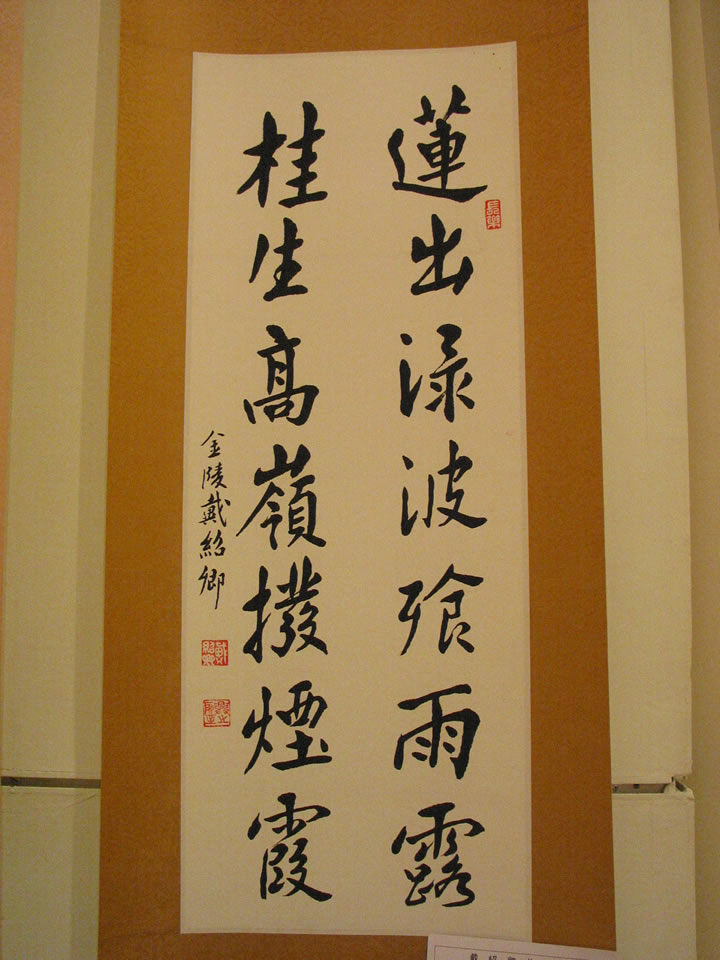 蓮出渌波飱雨露
桂生高嶺撥煙霞
金陵戴紹卿
長樂